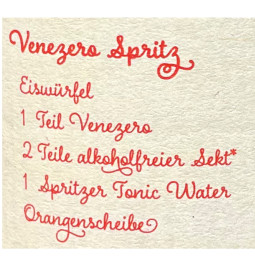 Venezero Spritz
Eiswürfel
1 Teil Venezero
2 Teile alkoholfreier Sekt*
1 Spritzer Tonic Water
Orangenscheibe